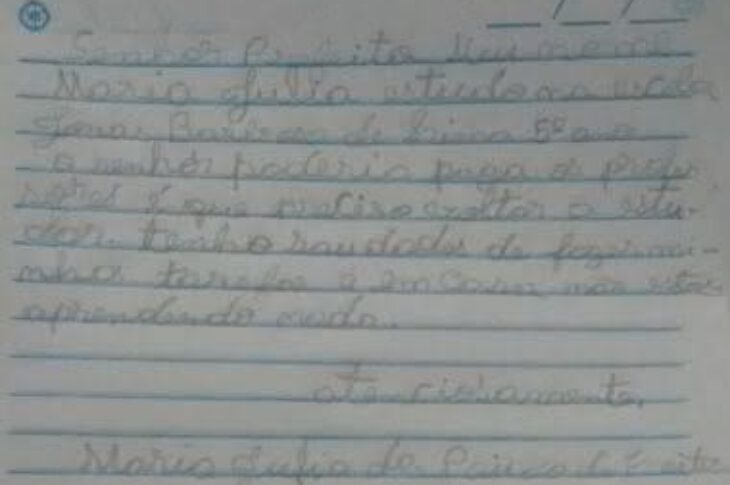 Senhor Prefeito Meu nome
Maria Julia estudo na escola
de Lima 5º ano
o senhor poderia paga os profe
sores é que preciso voltar a estu-
dar. tenho saudades de fazer mi-
nhas tarefas e em casa não estou
aprendendo nada.
atenciosamente,
Maria Julia de